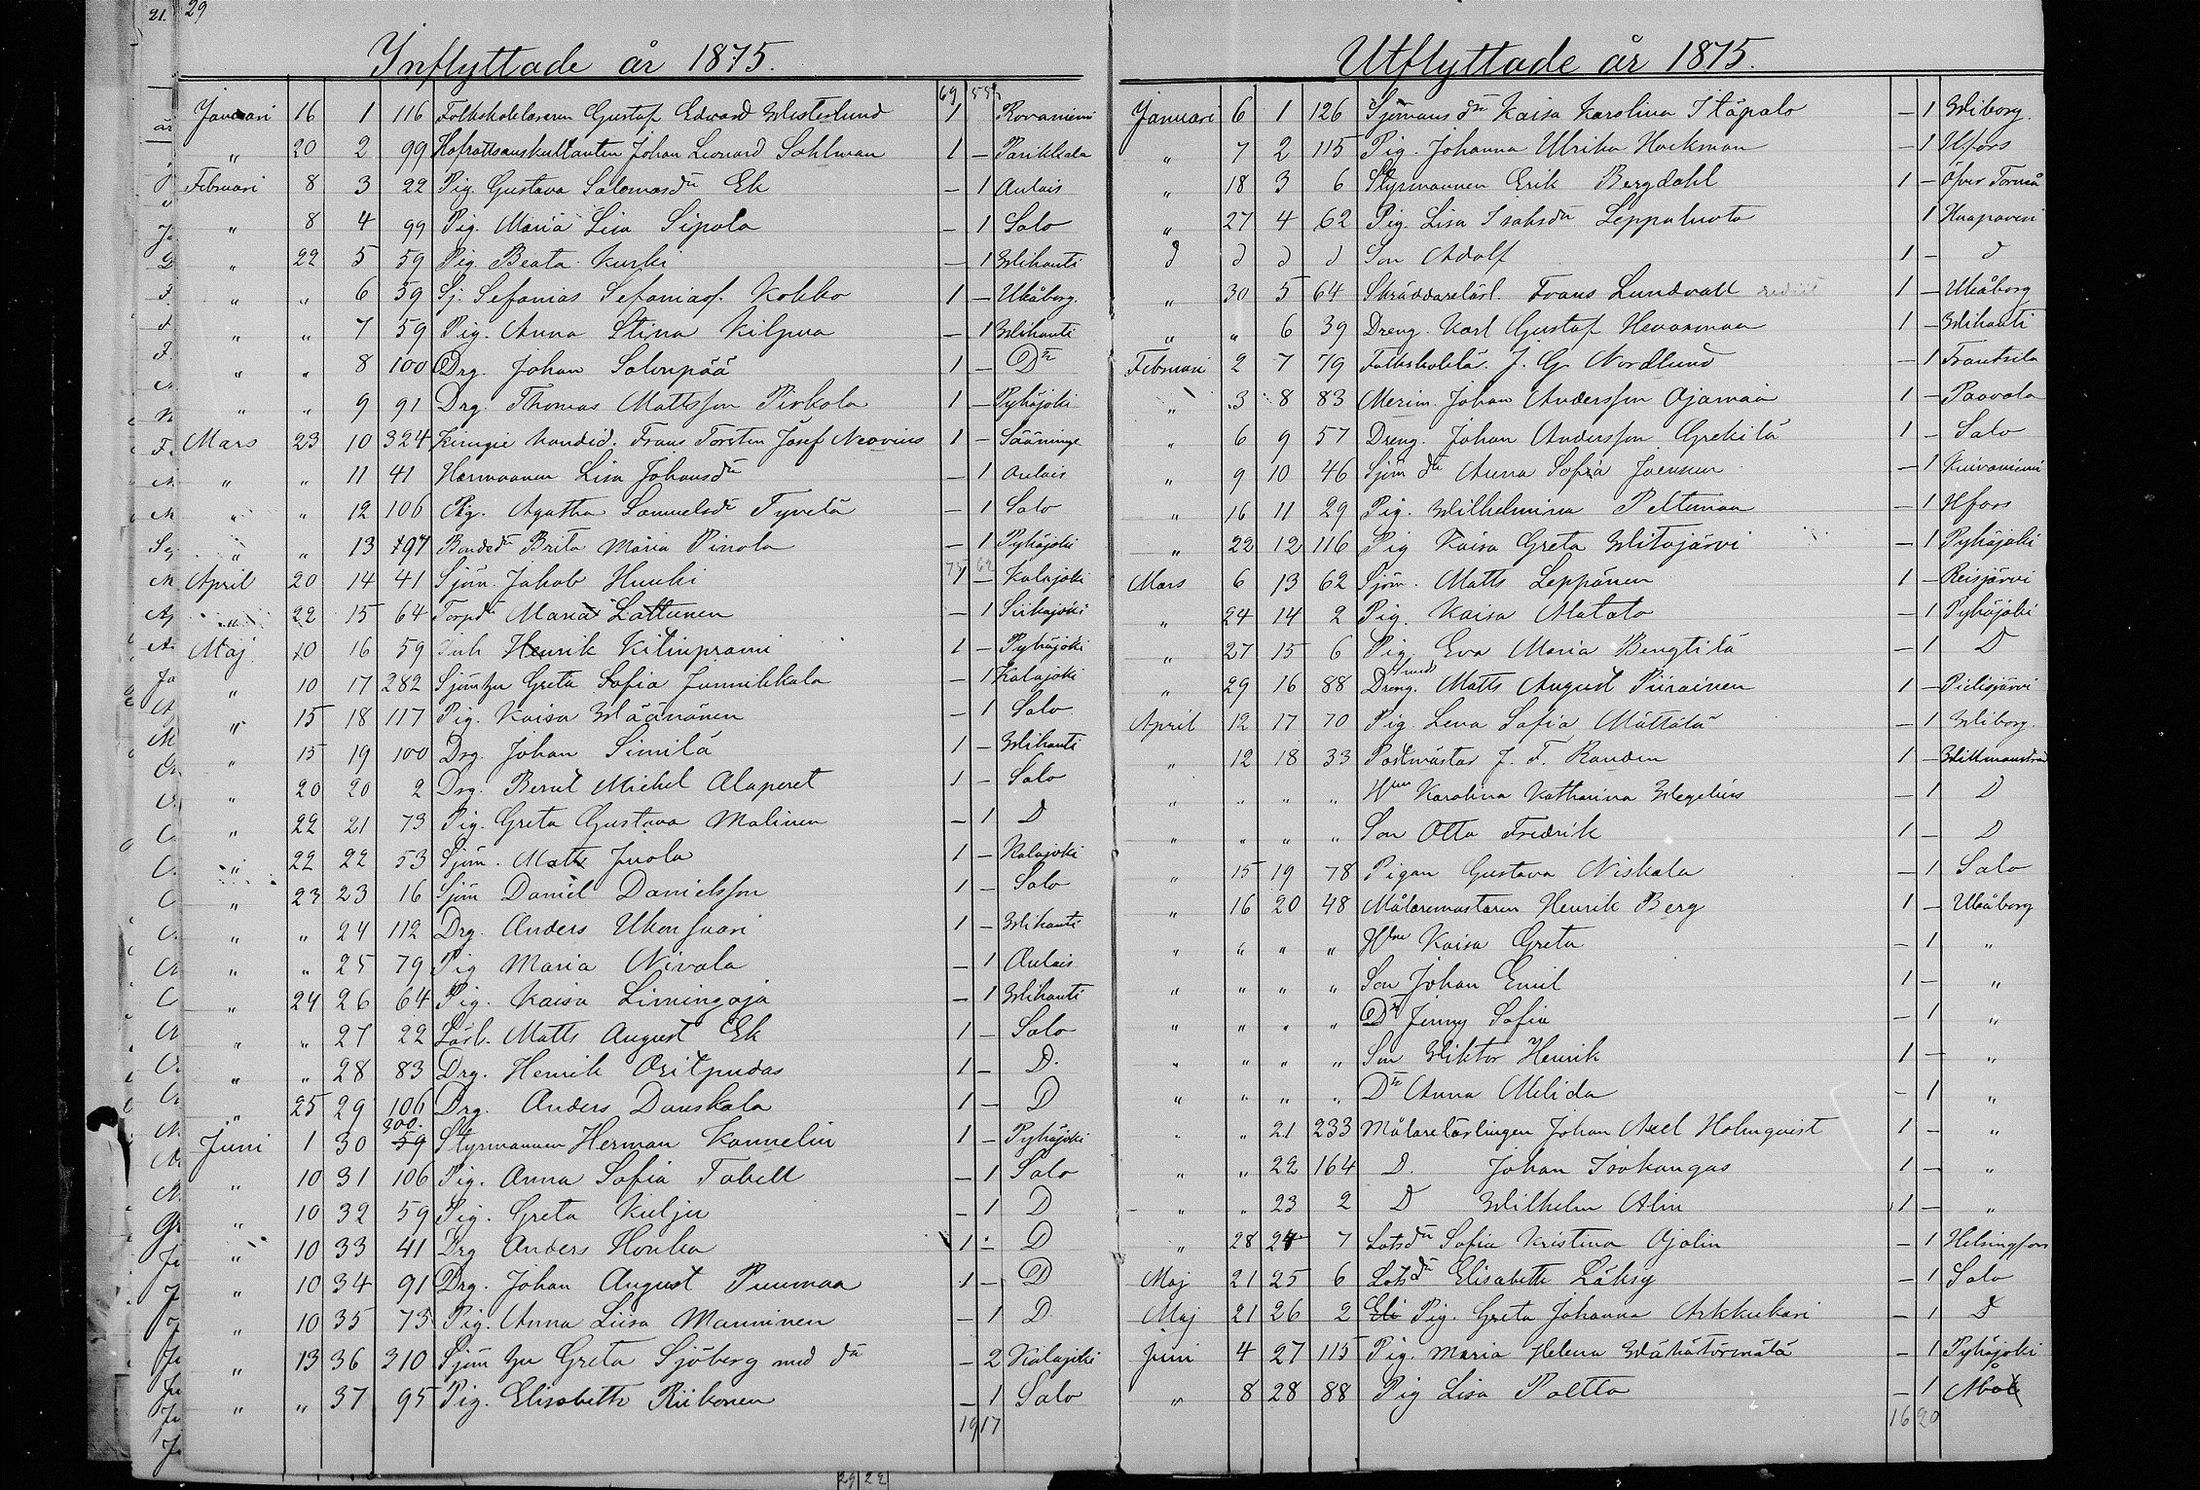 29
Inflyttade år 1875.
Januari 16 1 116 Folkskoleläraren Gustaf Edvard Westerlund 1 Rovaniemi
" 20 2 99 Hofrättsauskultanten Johan Leonard Sohlman 1 – Parikkala
Februari 8 3 22 Pig. Gustava Salomonsdr Ek – 1 Aulais
" 8 4 99 Pig. Maria Lisa Sipola – 1 Salo
" 22 5 59 Pig. Beata Kurki – 1 Wihanti
" " 6 59 Sj. Sefanias Sefaniass. Kokko 1 – Uleåborg.
" " 7 59 Pig. Anna Stina Kilpua – 1 Wihanti
" " 8 100 Drg. Johan Salonpää 1 – Do
" " 9 91 Drg. Thomas Mattsson Pirkola 1 – Pyhäjoki
Mars 23 10 324 Kirurgie Kandid. Frans Torsten Josef Neovius 1 – Sääminge
" " 11 41 Lisa Johansdr – 1 Aulais
" " 12 106 Pig. Agatha Samuelsdr Tyvelä – 1 Salo
" " 13 197 Bondedr Brita Maria Pinola – 1 Pyhäjoki
April 20 14 41 Sjöm. Jakob Huuki 1 – Kalajoki
" 22 15 64 Torpdr Maria Lattunen – 1 Siikajoki
Maj 10 16 59 Inh Henrik Kilinprami 1 – Pyhäjoki
" 10 17 282 Sjömhu Greta Sofia Junnikkala – 1 Kalajoki
" 15 18 117 Pig. Kaisa Wäänänen – 1 Salo
" 15 19 100 Drg. Johan Similä 1 – Wihanti
" 20 20 2 Drg. Bernt Michel Alaperet 1 – Salo
" 22 21 73 Pig. Greta Gustava Malinen – 1 D
" 22 22 53 Sjöm. Matts Juola 1 – Kalajoki
" 23 23 16 Sjöm Daniel Danielsson 1 – Salo
" " 24 112 Drg. Anders Ukonsaari 1 – Wihanti
" " 25 79 Pig Maria Nivala – 1 Aulais
" 24 26 64 Pig. Kaisa Limingoja – 1 Wihanti
" " 27 22 Lärl. Matts August Ek 1 – Salo
" " 28 83 Drg. Henrik Oritpudas 1 – D.
" 25 29 106 Drg. Anders Danskala 1 – D
Juni 1 30 300. 59 Styrmannen Herman Kannelin 1 – Pyhäjoki
" 10 31 106 Pig. Anna Sofia Tabell – 1 Salo
" 10 32 59 Pig. Greta Kulju – 1 D
" 10 33 41 Drg Anders Honka 1 – D
" 10 34 91 Drg. Johan August Puumaa 1 – D
" 10 35 73 Pig. Anna Liisa Manninen – 1 D
" 13 36 310 Sjöm hu Greta Sjöberg med dr – 2 Kalajoki
" " 37 95 Pig. Elisabeth Riikonen – 1 Salo
19 17
Utflyttade år 1875.
Januari 6 1 126 Sjömans dr Kaisa Karolina Itäpalo – 1 Wiborg.
" 7 2 115 Pig. Johanna Ulrika Hackman – 1 Hfors
" 18 3 6 Styrmannen Erik Bergdahl 1 – Öfver Torneå
" 27 4 62 Pig. Lisa Isaksdr Leppaluoto 1 Haapavesi
d d d d Son Adolf 1 – d
" 30 5 64 Skräddarelärl. Frans Lundvall 1 – Uleåborg
" " 6 39 Dreng. Karl Gustaf Hevosmaa 1 – Wihanti
Februari 2 7 79 Folkskolelär. J. G. Nordlund – 1 Frantsila
" 3 8 83 Merim. Johan Andersson Ojamaa 1 – Paavola
" 6 9 57 Dreng. Johan Andersson Grekilä 1 – Salo
" 9 10 46 Sjöm dr Anna Sofia Joensuu – 1 Kuivaniemi
" 16 11 29 Pig. Wilhelmina Peltomaa – 1 Hfors
" 22 12 116 Pig Kaisa Greta Witajärvi – 1 Pyhäjoki
Mars 6 13 62 Sjöm. Matts Leppänen 1 – Reisjärvi
" 24 14 2 Pig. Kaisa Matato – 1 Pyhäjoki
" 27 15 6 Pig Eva Maria Bengtilä – 1 D
" 29 16 88 Dreng. Smed Matts August Piirainen 1 – Pielisjärvi
April 12 17 70 Pig. Lena Sofia Määttälä – 1 Wiborg.
" 12 18 33 Postmästar J. F. Randen 1 – Willmanstrand
" " " " Hun Karolina Katharina Wegelius – 1 D
" " " " Son Otto Fredrik 1 – D
" 15 19 78 Pigan Gustava Niskala – 1 Salo
" 16 20 48 Målaremästaren Henrik Berg 1 – Uleåborg
" " " " Hun Kaisa Greta – 1 "
" " " " Son Johan Emil 1 – "
" " " " Dr Jenny Sofia – 1 "
" " " " Son Wiktor Henrik 1 – "
" " " " Dr Anna Melida – 1 "
" " 21 233 Målarelärlingen Johan Axel Holmqvist 1 – "
" " 22 164 D. Johan Isokangas 1 – "
" " 23 2 D Wilhelm Alin 1 – "
" 28 24 7 Lotsdr Sofia Kristina Ojalin – 1 Helsingfors
Maj 21 25 6 Lotsdr Elisabeth Läksy – 1 Salo
Maj 21 26 2 Eli Pig. Greta Johanna Arkkukari – 1 D
Juni 4 27 115 Pig. Maria Helena Wähätörmälä – 1 Pyhäjoki
" 8 28 88 Pig Lisa Poltto – 1 Åbo
16 20